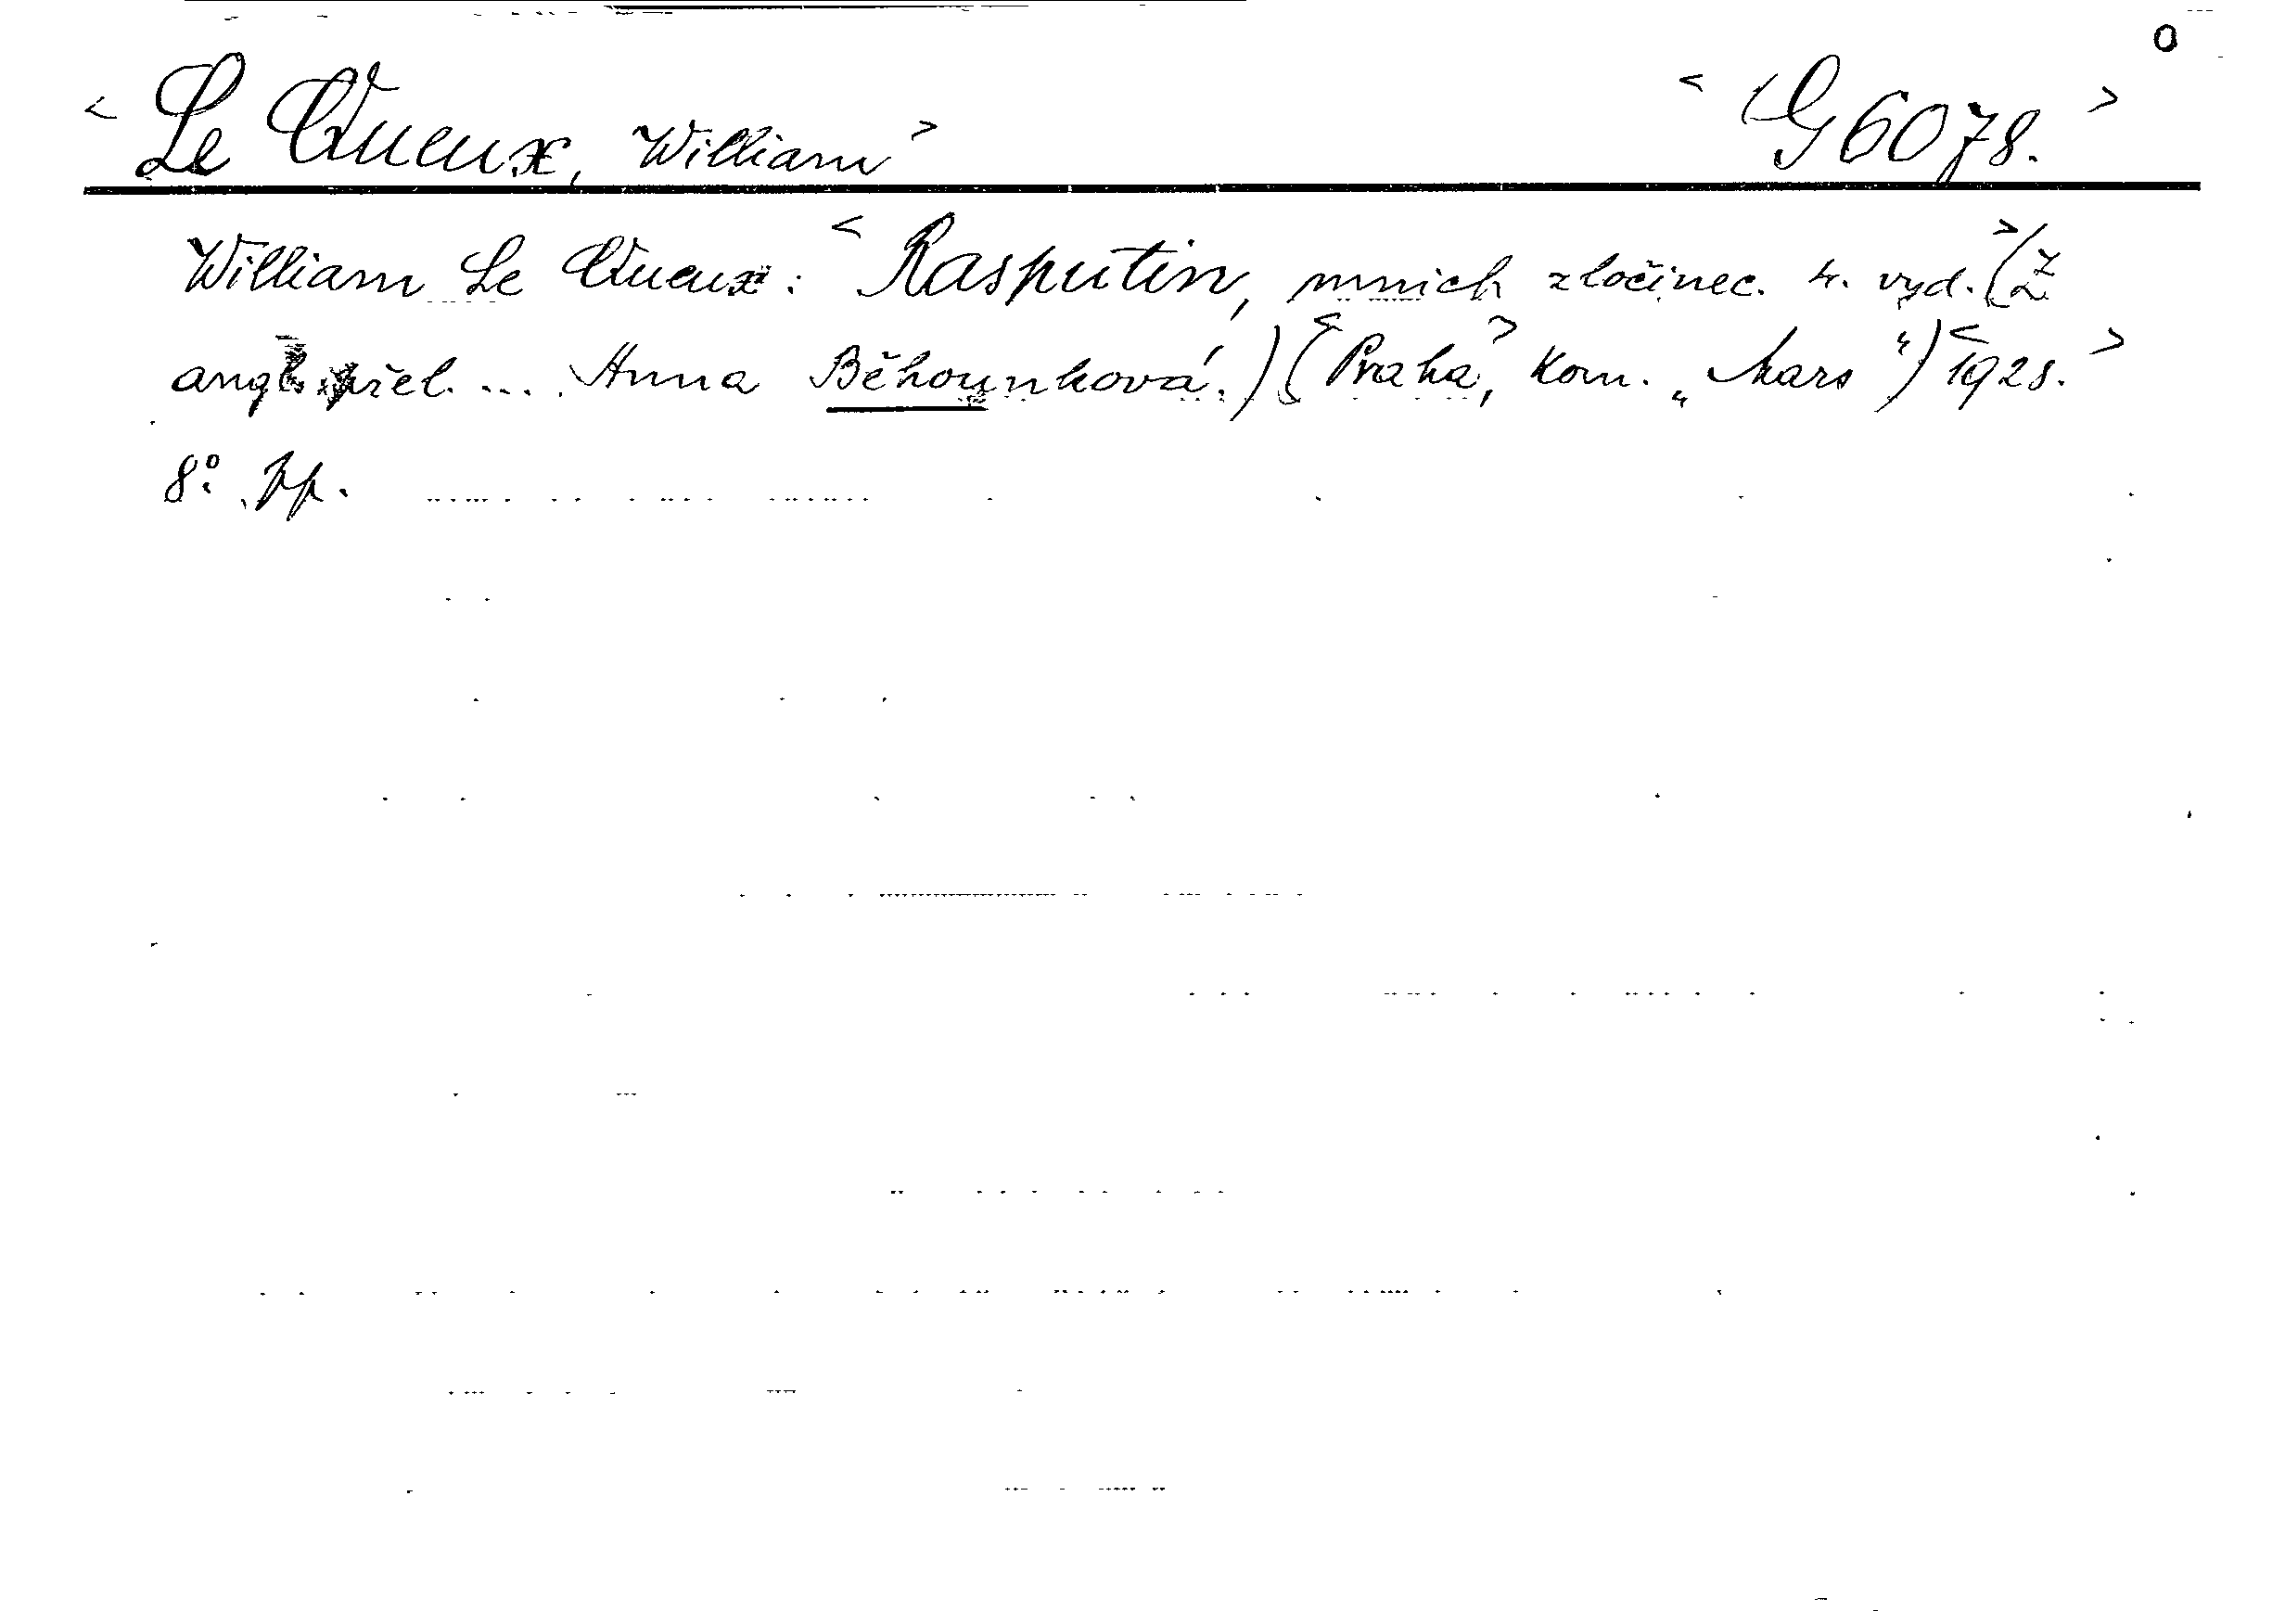 o
< Le Queux, William > < G 6078. >
William Le Queux: < Rasputin, mnich zločinec. 4. vyd. > (Z
angl. přel. ... Anna Běhounková.) (< Praha >, Kom. „Mars“) < 1928. >
8°. pp.